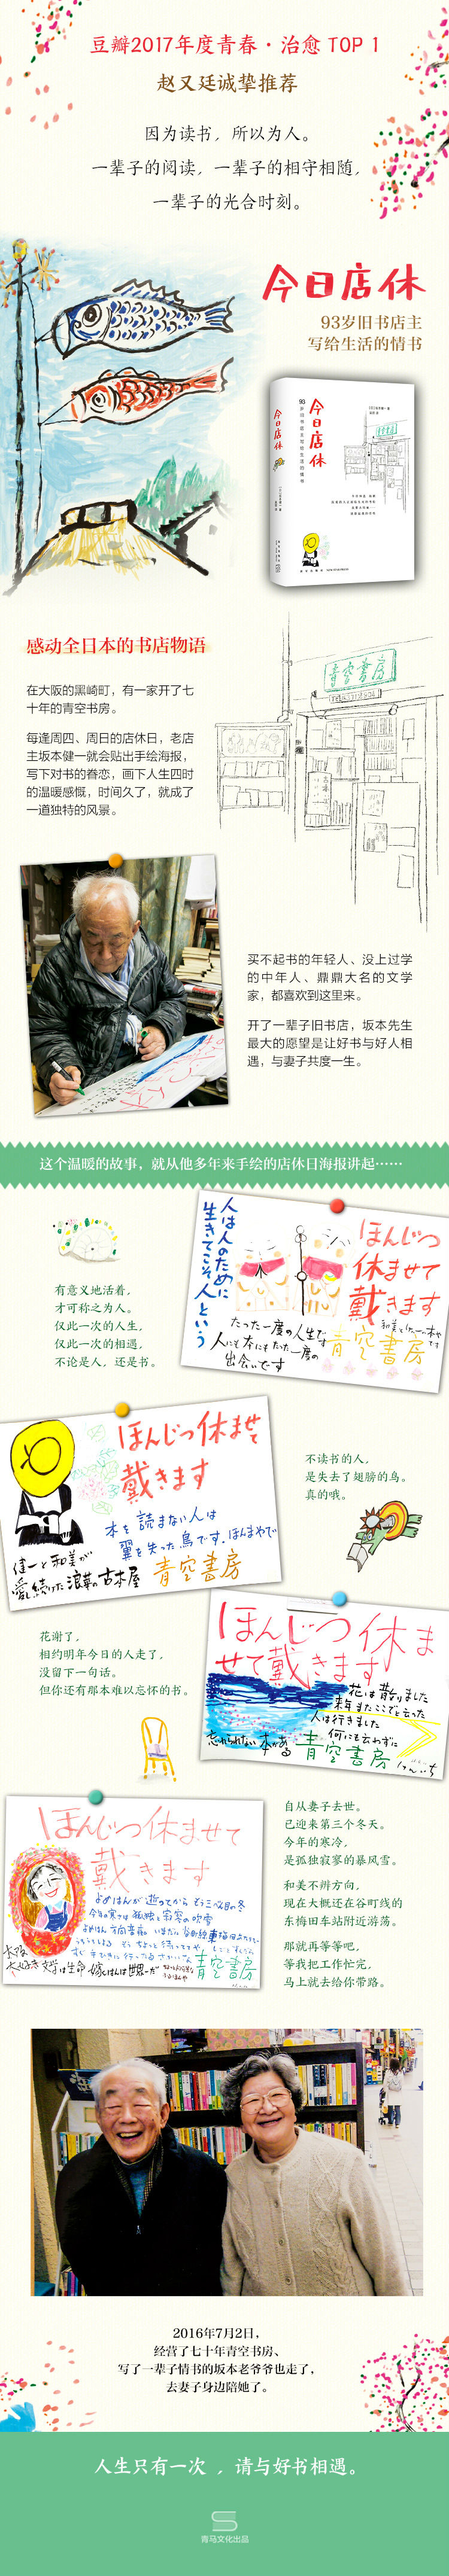 豆瓣2017年度青春·治愈 TOP 1
赵又廷诚挚推荐
因为读书，所以为人。
一辈子的阅读，一辈子的相守相随，
一辈子的光合时刻。
今日店休
93岁旧书店主
写给生活的情书
今日店休
93岁旧书店主写给生活的情书
今日店休
感动全日本的书店物语
在大阪的黑崎町，有一家开了七
十年的青空书房。
每逢周四、周日的店休日，老店
主坂本健一就会贴出手绘海报，
写下对书的眷恋，画下人生四时
的温暖感慨，时间久了，就成了
一道独特的风景。
青空書房
买不起书的年轻人、没上过学
的中年人、鼎鼎大名的文学
家，都喜欢到这里来。
开了一辈子旧书店，坂本先生
最大的愿望是让好书与好人相
遇，与妻子共度一生。
这个温暖的故事，就从他多年来手绘的店休日海报讲起……
有意义地活着，
才可称之为人。
仅此一次的人生，
仅此一次的相遇，
不论是人，还是书。
人は人のために
生きてこそ人という
ほんじつ
休ませて
戴きます
たった一度の人生です
人にも本にもたった一度の
出会いです
青空書房
ほんじつ休ませて
戴きます
本を読まない人は
翼を失った鳥です.ほんまやで
健一と和美が
愛し続けた浪華の古本屋
青空書房
不读书的人，
是失去了翅膀的鸟。
真的哦。
花谢了，
相约明年今日的人走了，
没留下一句话。
但你还有那本难以忘怀的书。
ほんじつ休ま
せて戴きます
花は散りました
来年またここでと云った
人は行きました
何にも云わずに
忘れられない本がある
青空書房
けんいち
ほんじつ休ませて
戴きます
よめはんが逝ってからもう三べん目の冬
今年の寒さは孤独と寂寞の吹雪
青空書房
自从妻子去世。
已迎来第三个冬天。
今年的寒冷，
是孤独寂寥的暴风雪。
和美不辨方向，
现在大概还在谷町线的
东梅田车站附近游荡。
那就再等等吧，
等我把工作忙完，
马上就去给你带路。
2016年7月2日，
经营了七十年青空书房、
写了一辈子情书的坂本老爷爷也走了，
去妻子身边陪她了。
人生只有一次 ，请与好书相遇。
青马文化出品